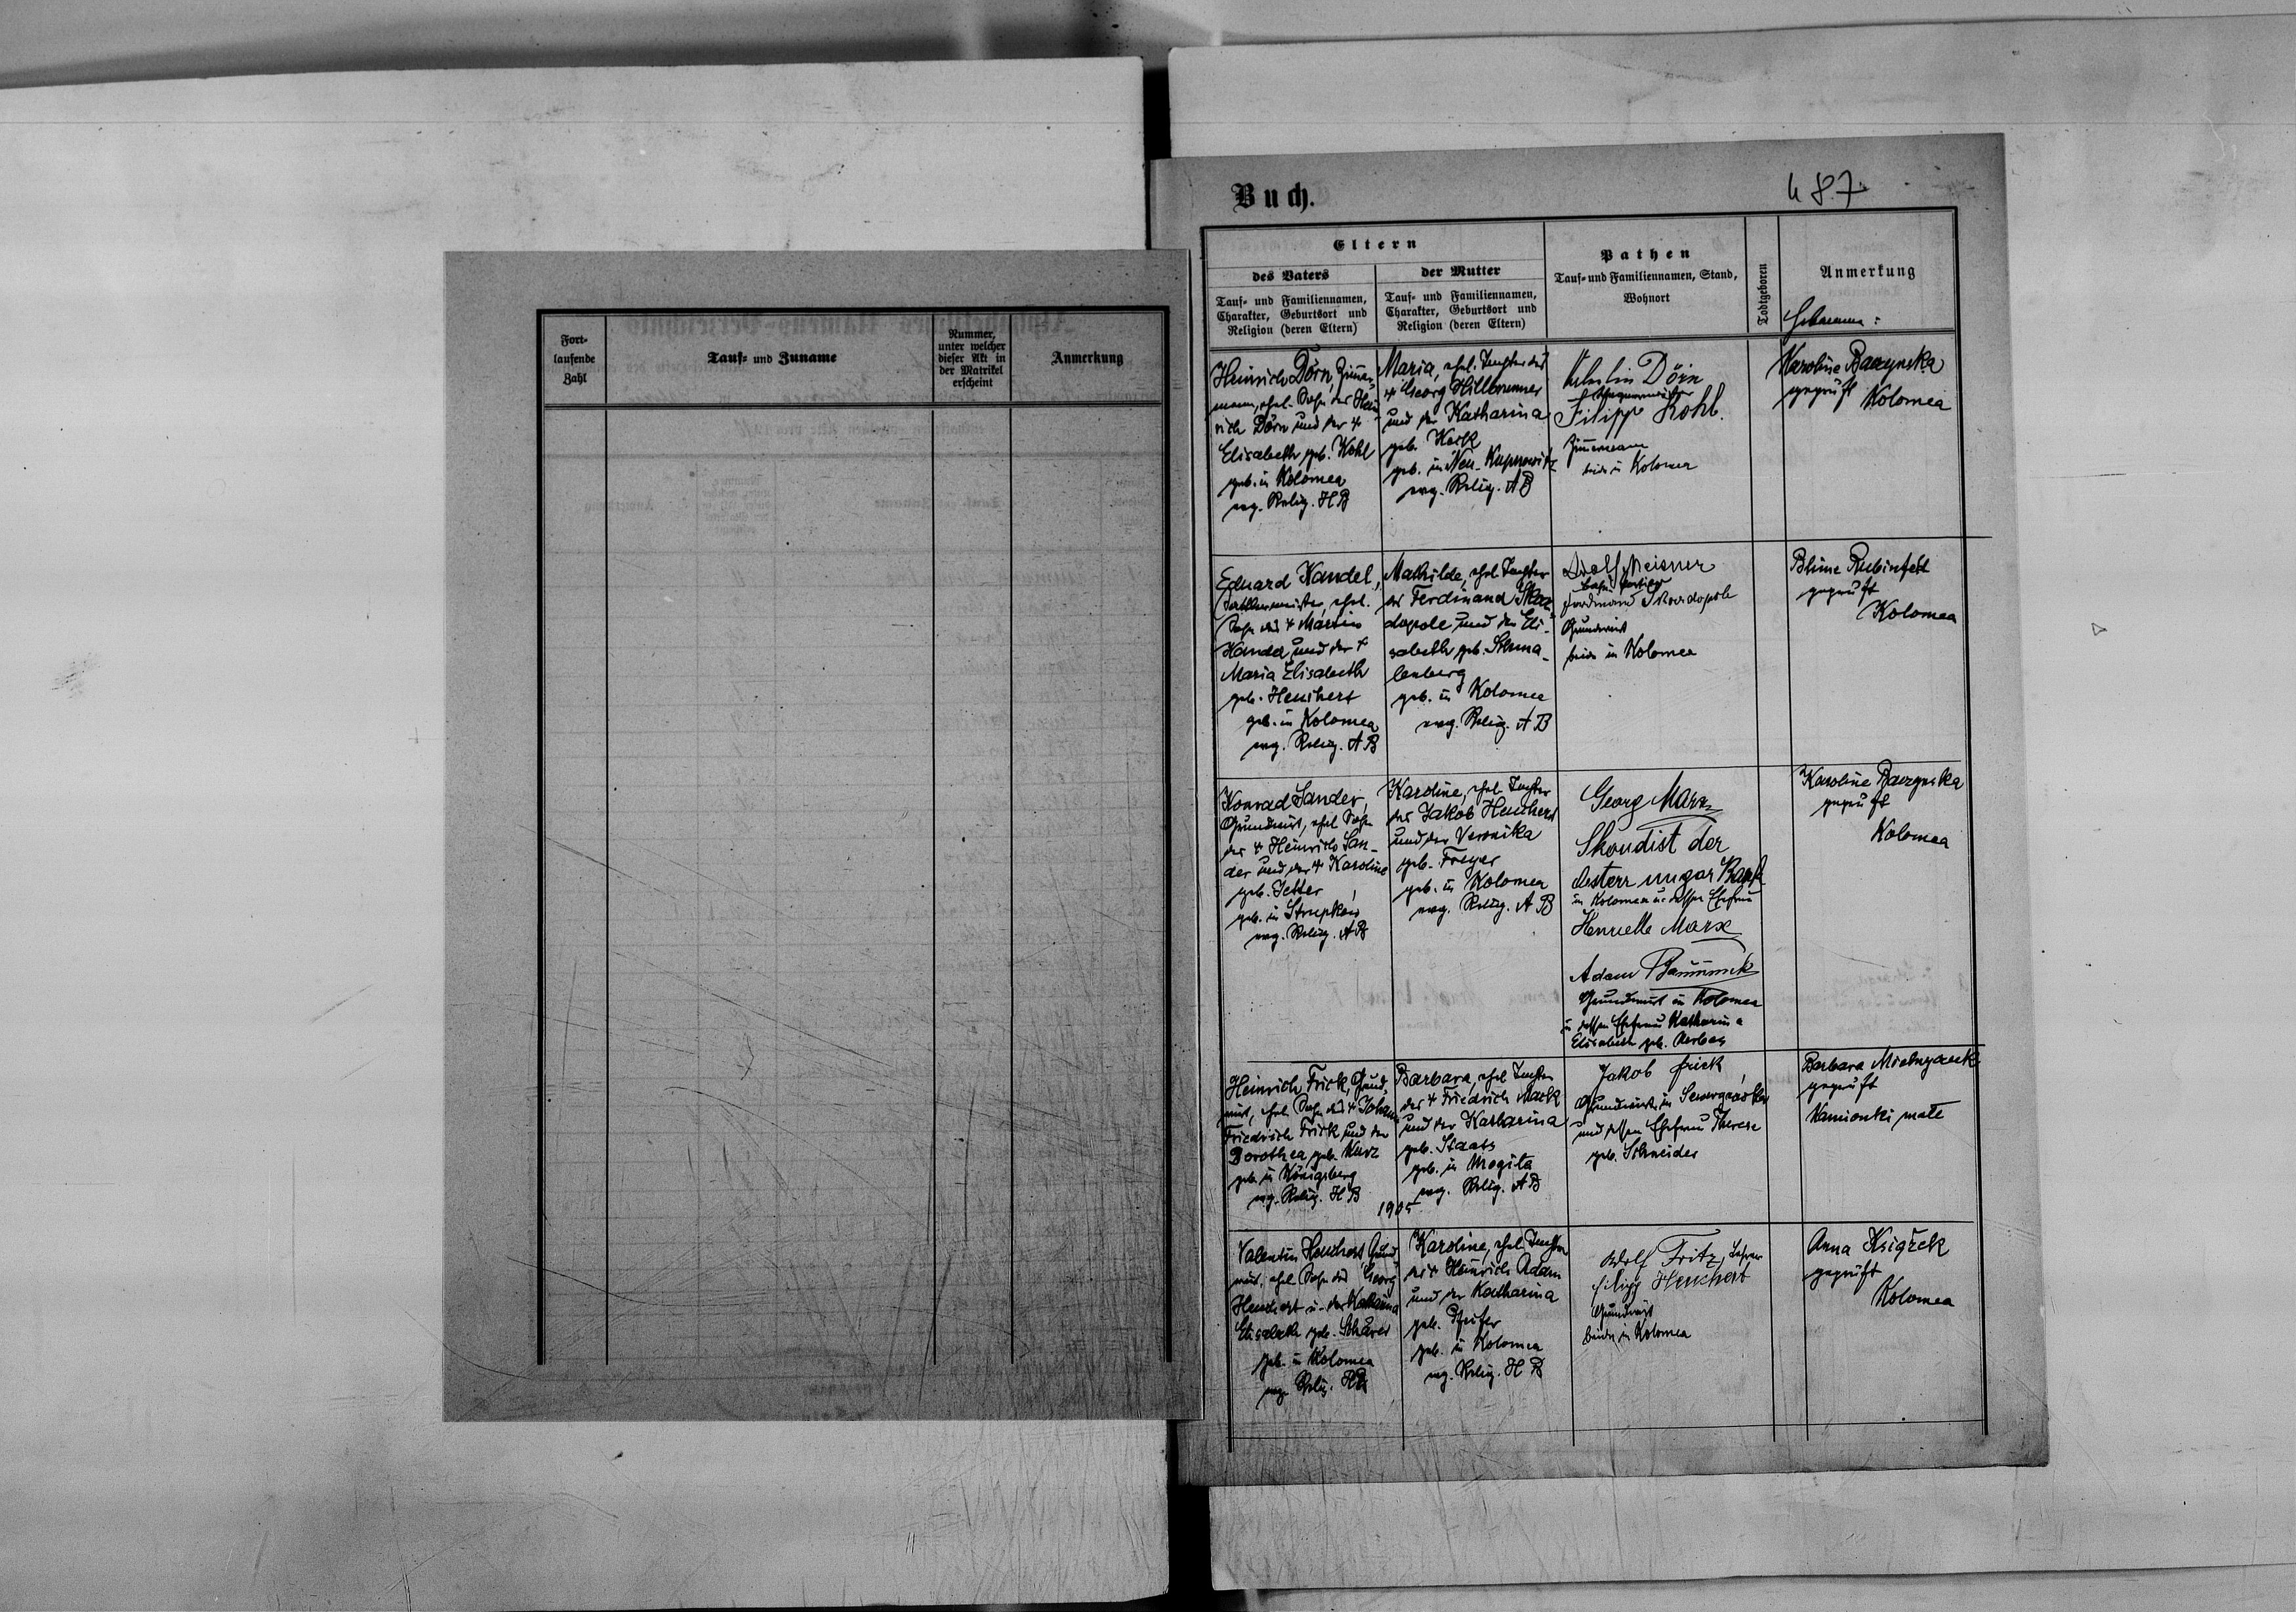 Fort-
laufende
Zahl
Tauf- und Zuname
Nummer,
unter welcher
dieser Akt in
der Matrikel
erscheint
Anmerkung
Buch.
487
Eltern
des Vaters
Tauf- und Familiennamen,
Charakter, Geburtsort und
Religion (deren Eltern)
der Mutter
Tauf- und Familiennamen,
Charakter, Geburtsort und
Religion (deren Eltern)
Pathen
Tauf- und Familiennamen, Stand,
Wohnort
Todtgeboren
Anmerkung
Hebamme:
Heinrich Dörn Zimmer-
mann, ehel. Sohn des Hein-
rich Dörn und der †
Elisabeth geb. Kohl
geb. in Kolomea
evg. Relig. HB
Maria, ehel. Tochter des
† Georg Hillbrunner
und der Katharina
geb. Keck
geb. in Neu-Kupnowitz
evg. Relig. AB
Dörn
Filipp Kohl.
Zimmermann
beide in Kolomea
Karoline Baczynska
geprüft
Kolomea
Eduard Kandel,
Sattlermeister, ehel.
Sohn des † Martin
Kandel und der †
Maria Elisabeth
geb. Heuchert
geb. in Kolomea
evg. Relig. AB
Mathilde, ehel. Tochter
des Ferdinand Skor-
dopole und der Eli-
sabeth geb. Schma-
lenberg
geb. in Kolomea
evg. Relig. AB
Adolf Meisner
Ferdinand Skordopole
Grundwirt
beide in Kolomea
Blime Rubinfeld
geprüft
Kolomea
Konrad Sander,
Grundwirt, ehel. Sohn
des † Heinrich San-
der und der † Karoline
geb. Jetter
geb. in Strupkow
evg. Relig. AB
Karoline, ehel. Tochter
des Jakob Heuchert
und der Veronika
geb. Freyer
geb. in Kolomea
evg. Relig. AB
Georg Marx
der
österr ungar Bank
in Kolomea u. dessen Ehefrau
Henriette Marx
Adam
Grundwirt in Kolomea
u. dessen Ehefrau Katharina
Elisabeth geb.
Karoline Baczynska
geprüft
Kolomea
Heinrich Frick, Grund-
wirt, ehel. Sohn des † Johann
Friedrich Frick und der
Dorothea geb. Kurz
geb. in Königsberg
evg. Relig. HB
Barbara, ehel. Tochter
des † Friedrich Mack
und der Katharina
geb. Staats
geb. in Mogila
evg. Relig. AB
Jakob Frick,
Grundwirt in
und dessen Ehefrau Therese
geb. Schneider
Barbara
geprüft
Kamionki małe
1905
Valentin Heuchert, Grund-
wirt, ehel. Sohn des Georg
Heuchert u. der Katharina
Elisabeth geb. Schärer
geb. in Kolomea
evg. Relig. HB
Karoline, ehel. Tochter
des † Heinrich Adam
und der Katharina
geb. Pfeifer
geb. in Kolomea
evg. Relig. HB
Adolf Fritz, Lehrer
Filipp Heuchert
Grundwirt
beide in Kolomea
Anna Książek
geprüft
Kolomea